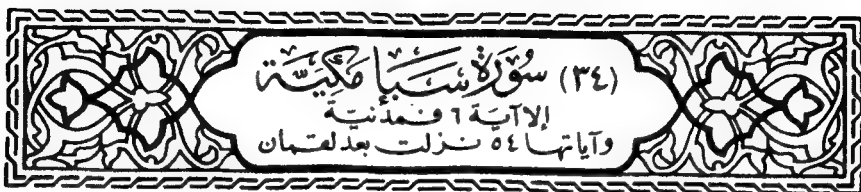 (٣٤) سُورَة سَبَأ مَكيَّة
إلا آية ٦ فمدنية
وآياتها ٥٤ نزلت بعد لقمان